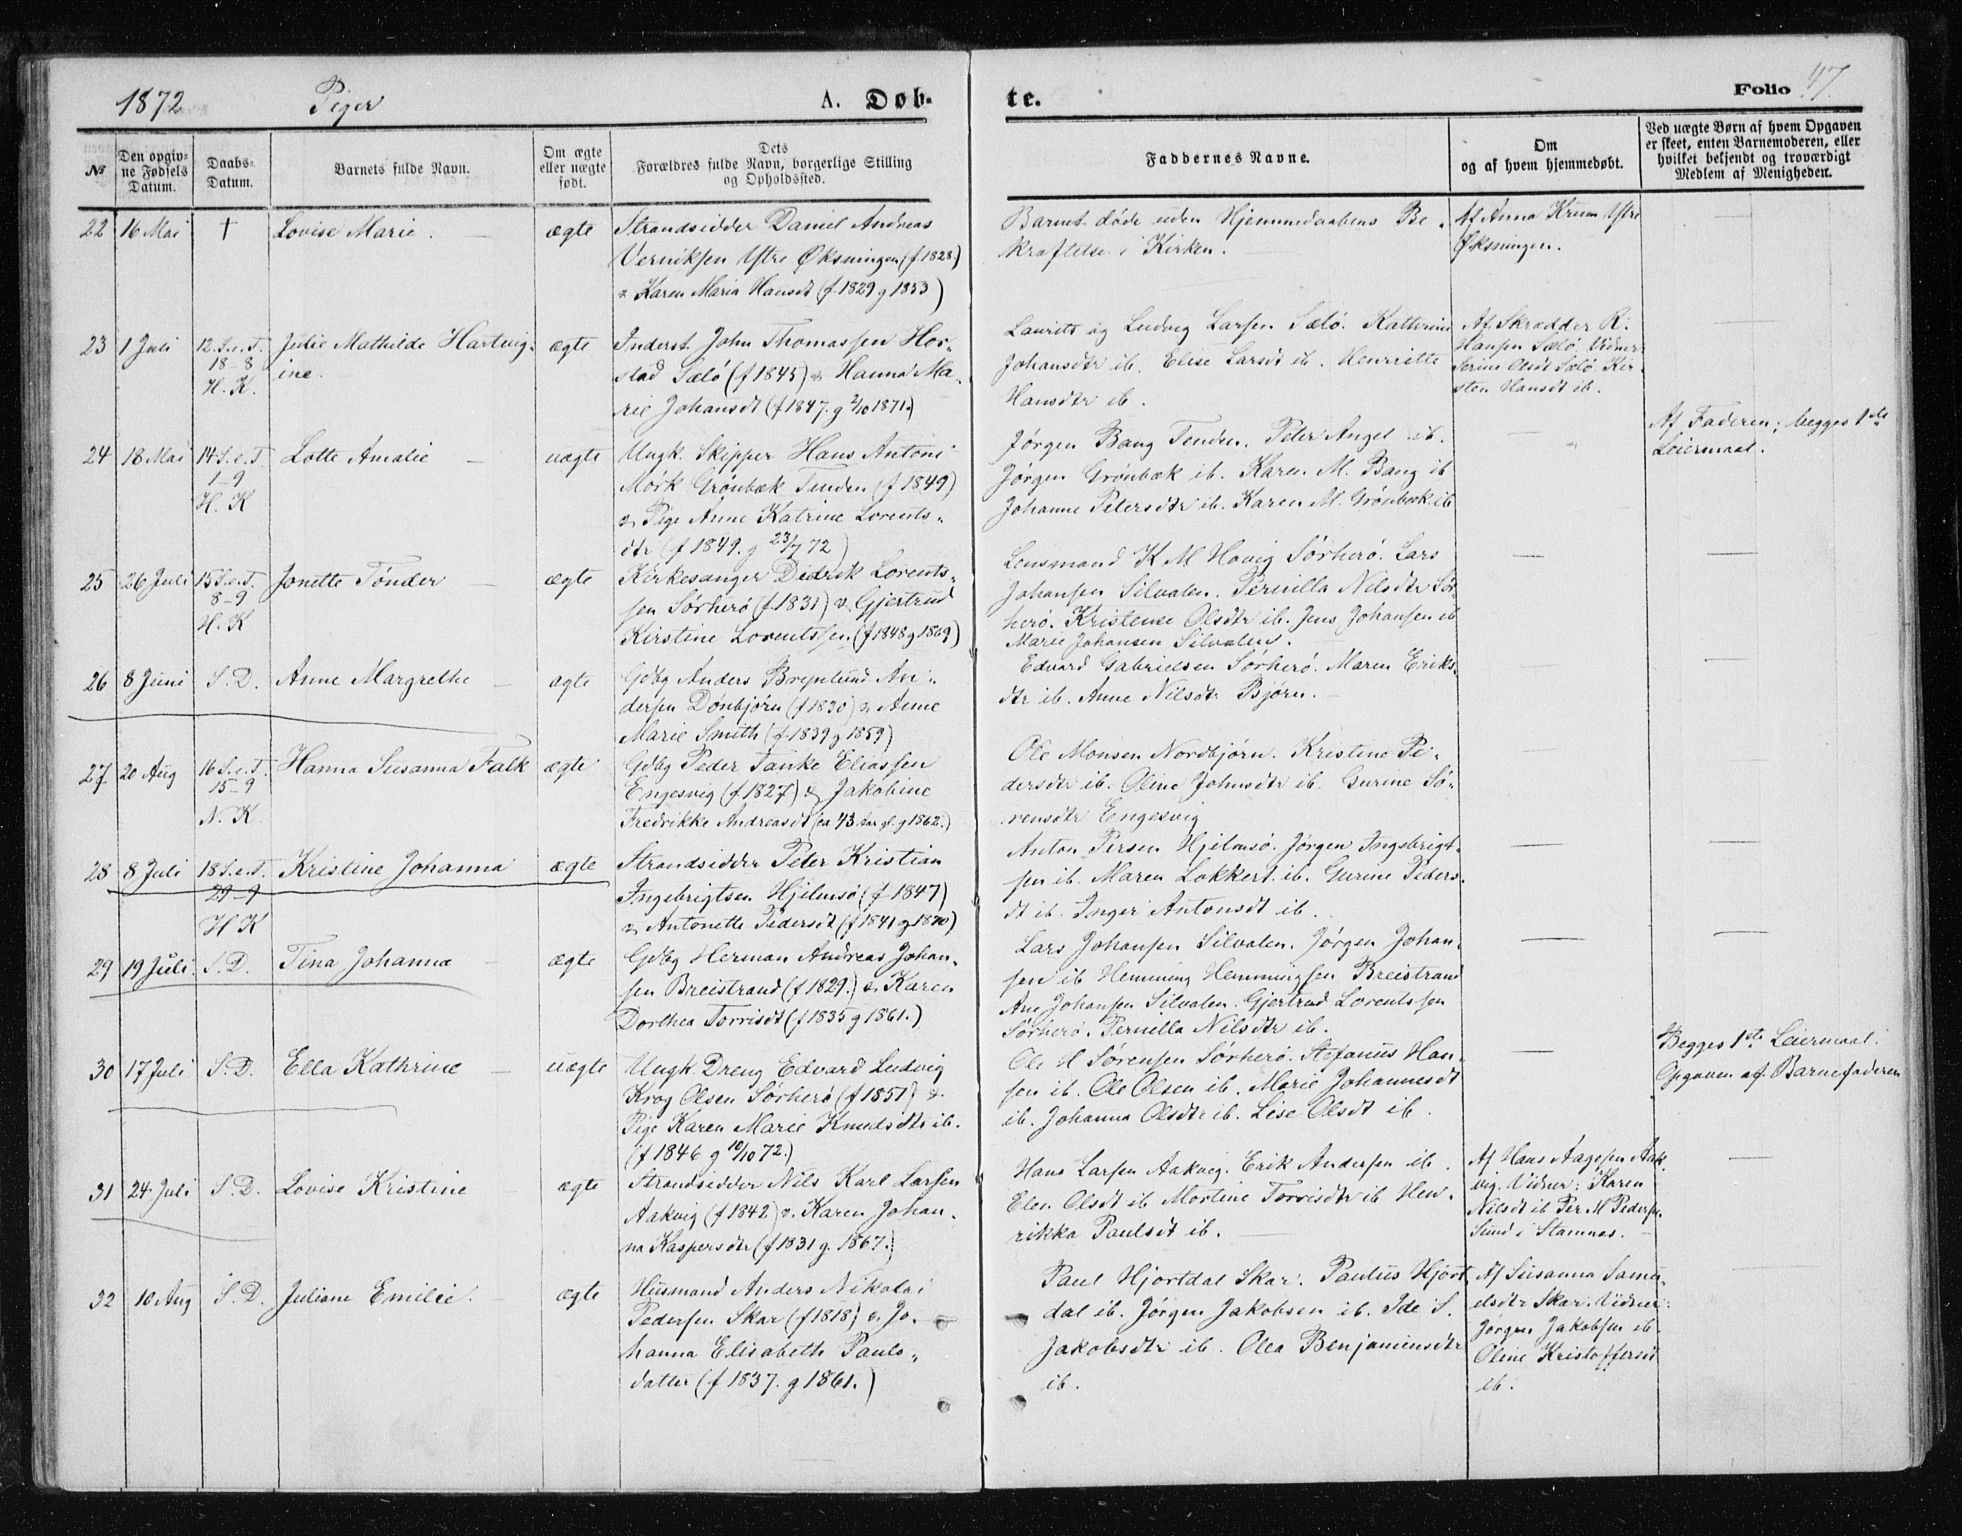 1872 Piger A. Døb-
te. Folio 47.
№
Den opgiv-
ne Fødsels
Datum.
Daabs-
Datum.
Barnets fulde Navn.
Om ægte
eller uægte
født.
Dets
Forældres fulde Navn, borgerlige Stilling
og Opholdssted.
Faddernes Navne.
Om
og af hvem hjemmedøbt.
Ved uægte Børn af hvem Opgaven
er skeet, enten Barnemoderen, eller
hvilket bekjendt og troværdigt
Medlem af Menigheden.
22 16 Mai † Lovise Marie. ægte
Strandsidder Daniel Andreas
Verniksen Ystre Øksningen (f 1828.)
& Karen Maria Hansdt (f. 1829 g 1853)
Barnet døde uden Hjemmedaabens Be-
kræftelse i Kirken.
Af Anna Krum Ystre
Øksningen.
23 1 Juli
12 S.e.T.
18-8
H. K.
Julie Mathilde Hartvig-
ine.
ægte
Inderst John Thomassen Hor-
stad Sælö (f 1845) & Hanna Ma-
rie Johansdt (f. 1847. g 2/10 1871.)
Laurits og Ludvig Larsen Sælö. Kathrine
Johansdtr ib. Elise Larsdt ib. Henriette
Hansdtr ib.
Af Skrædder R.
Hansen Sælö. Vidner
Serine Olsdt Sælö. Kir-
sten Hansdt ib.
24 18 Mai
14 S.e.T
1-9
H. K
Lotte Amalie
uægte
Ungk. Skipper Hans Antoni
Mørk Grønbæk Tenden (f 1849)
& Pige Anne Katrine Lorents-
dtr (f 1849. g 23/7 72)
Jørgen Bang Tenden. Peter Angel ib.
Jørgen Grønbæk ib. Karen M. Bang ib
Johanne Petersdtr ib. Karen M. Grønbæk ib
Af Faderen; begges 1ste
Leiermaal.
25 26 Juli
15 S.e.T.
8-9
H. K
Jonette Tønder
ægte
Kirkesanger Didrik Lorents-
sen Sørherø (f 1831) & Gjertrud
Kirstine Lorentssen (f 1848 g 1869)
Lensmand K M Hovig Sørherø. Lars
Johansen Silvalen. Pernilla Nilsdtr Sør-
herø. Kristense Olsdtr ib. Jens Johansen ib
Marie Johansen Silvalen.
26 8 Juni S. D. Anne Margrethe ægte
Gdbg Anders Brynlund An-
dersen Dønbjørn (f 1830) & Anne
Marie Smith (f 1839 g 1859)
Edvard Gabrielsen Sørherø. Maren Eriks-
dtr ib. Anne Nilsdtr Bjørn.
27 20 Aug
16 S.e.T.
15-9
N. K.
Hanna Susanna Falk
ægte
Gdbg Peder Tanke Eliassen
Engesvig (f 1827) & Jakobine
Fredrikke Andreasdt (ca 43 Aar gl. g 1862.)
Ole Monsen Nordbjørn. Kristine Pe-
dersdtr ib. Oline Johnsdtr ib. Gurine Sø-
rensdtr Engesvig
28 8 Juli
18 S.e.T.
29-9
H K
Kristine Johanna
ægte
Strandsidder Peter Kristian
Ingebrigtsen Hjelmsö (f 1847)
& Antonette Pedersdt (f 1841 g 1870)
Anton Persen Hjelmsö. Jørgen Ingebrigt-
sen ib. Maren Lokkert ib. Gurine Peders-
dt ib. Inger Antonsdt ib.
29 19 Juli. S. D. Tina Johanna ægte
Gdbg Herman Andreas Johan-
sen Breistrand (f 1829.) & Karen
Dorthea Torrisdt (f 1835 g 1861.)
Lars Johansen Silvalen. Jørgen Johan-
sen ib Hemming Hemmingsen Breistrand
Ane Johansen Silvalen. Gjertrud Lorentssen
Sørherø. Pernella Nilsdtr ib.
30 17 Juli S. D. Ella Kathrine uægte
Ungk Dreng Edvard Ludvig
Krog Olsen Sørherö (f 1851) &
Pige Karen Marie Knudsdtr ib.
(f 1846 g 10/10 72.)
Ole H Sörensen Sørherö. Stefanus Han-
sen ib. Ole Olsen ib. Marie Johannesdt
ib. Johanna Olsdtr ib. Lise Olsdt ib.
Begges 1ste Leiermaal.
Opgaven af Barnefaderen
31 24 Juli S. D. Lovise Kristine ægte
Strandsidder Nils Karl Larsen
Aakvig (f 1842) & Karen Johan-
na Kaspersdtr (f 1831 g. 1867.)
Hans Larsen Aakvig. Erik Andersen ib.
Elen Olsdt ib Martine Torrisdtr ib Hen-
rikka Paulsdt ib.
Af Hans Aagesen Aak-
vig. Vidner: Karen
Nilsdt ib Per M Peders.
Sund i Stamnes.
32 10 Aug S. D. Juliane Emilie. ægte
Husmand Anders Nikolai
Pedersen Skar (f 1818) & Jo-
hanna Elisabeth Pauls-
datter (f 1837. g 1861.)
Paul Hjortdal Skar. Paulus Hjort
dal ib. Jørgen Jakobsen ib. Ide S.
Jakobsdtr ib. Olea Benjaminsdtr
ib.
Af Susanna Samu-
elsdtr Skar. Vidner:
Jørgen Jakobsen ib.
Oline Kristoffersdt
ib.